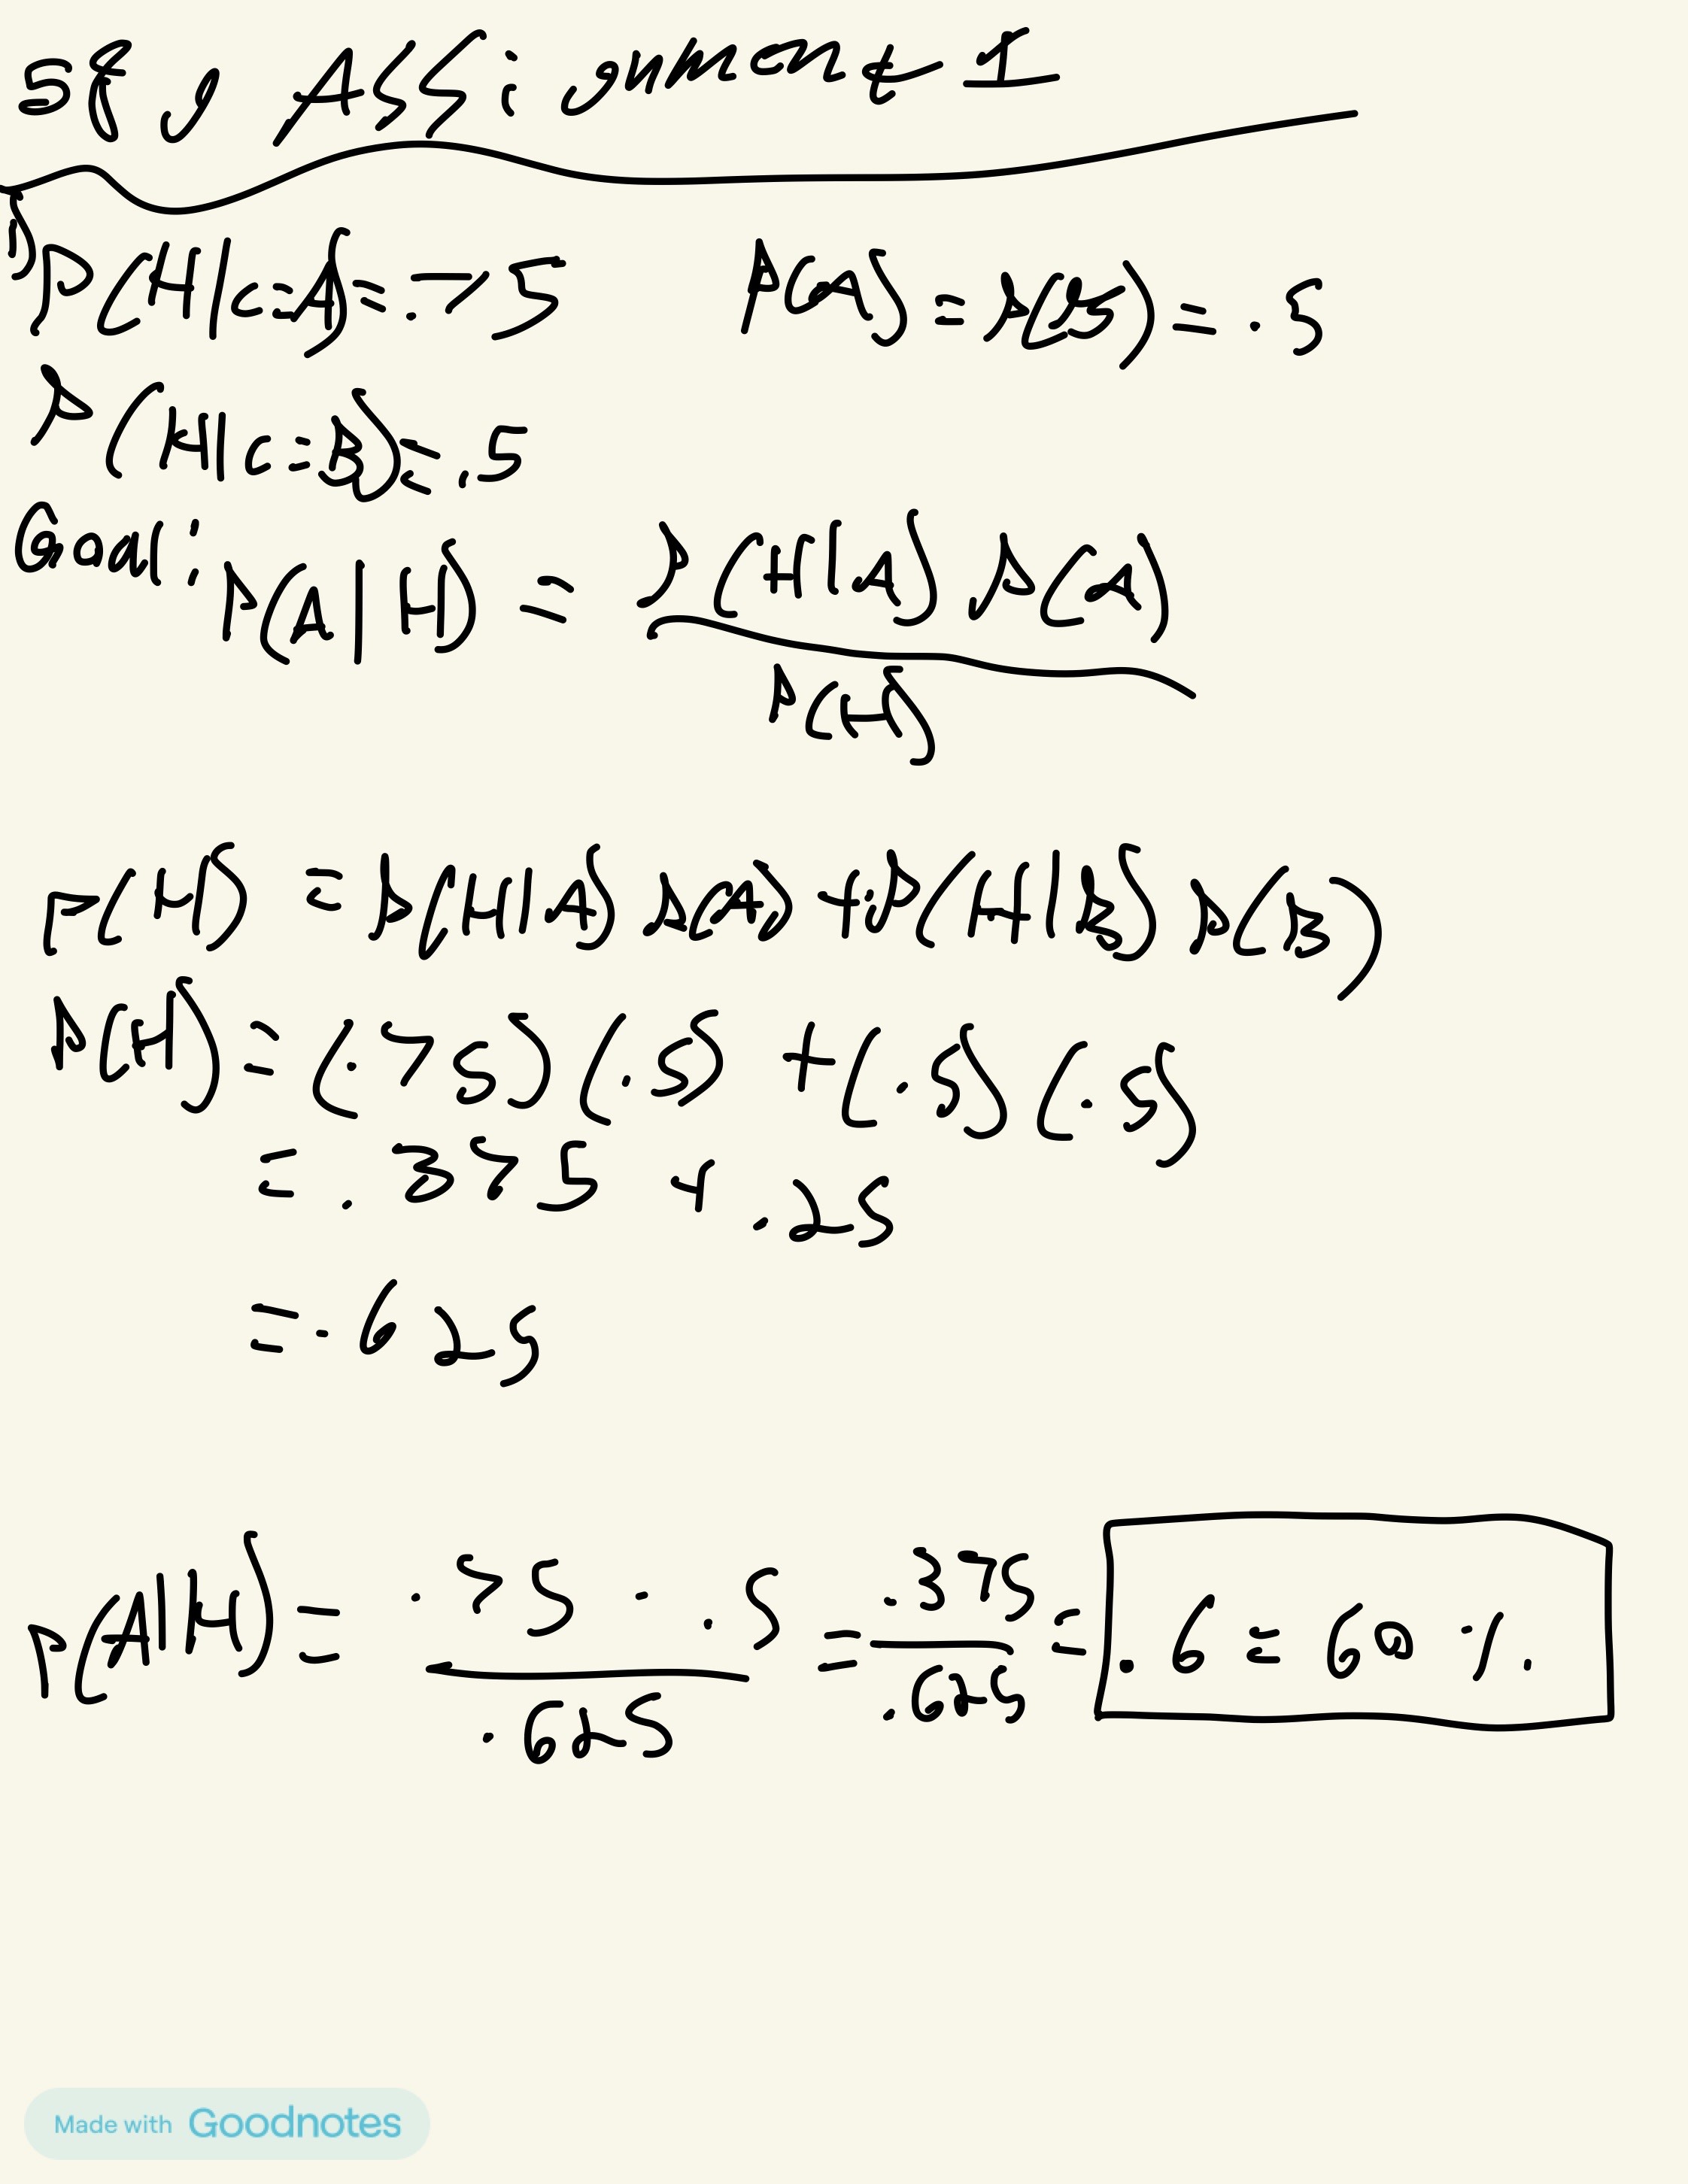 Assignment 1
1) P(H|c=A) = .75 P(A) = P(B) = .5
P(H|c=B) = .5
Goal: P(A|H) = P(H|A) P(A) / P(H)
P(H) = P(H|A) P(A) + P(H|B) P(B)
P(H) = (.75)(.5) + (.5)(.5)
= .375 + .25
= .625
P(A|H) = .75 · .5 / .625 = .375 / .625 = .6 = 60%
Made with Goodnotes